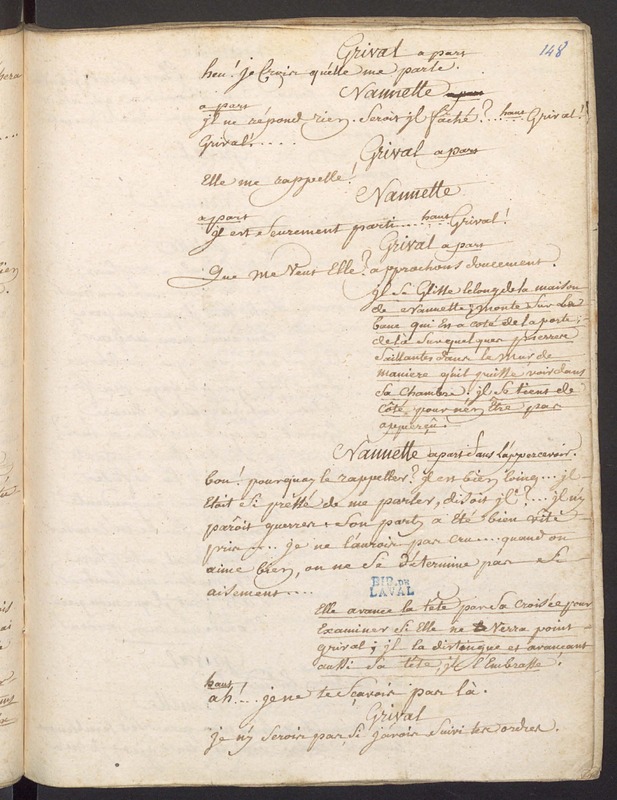 148
Grival a part
heu! je Crois qu'elle me parle.
Nannette a part
a part
jl ne répond rien. Seroit jl fâché?... haut Grival!
Grival!.....
Grival a part
Elle me rappelle!
Nannette
a part
jl est Seurement parti..... haut Grival!
Grival a part
Que me Veut Elle? approchons doucement.
jl Se Glisse le long de la maison
de Nannette; monte Sur Le
banc qui Est a coté de la porte;
de la Sur quelques pierres
Saillantes dans le mur de
maniere qu'il puisse voir dans
Sa Chambre. jl Se tient de
côté pour n'en Être pas
apperçu.
Nannette a part Sans L'appercevoir.
bon! pourquoy le rappeller? jl est bien loing... jl
Etoit Si pressé de me parler, disoit jl?... jl n'y
paroit guerres. Son party a été bien vîte
pris.... je ne l'aurois pas cru..... quand on
aime bien, on ne Se détermine pas Si
aisement.....
BIB. DE
LAVAL
Elle avance la tête par Sa Croisée pour
Examiner Si Elle ne Verra point
grival; jl la distingue et avancant
aussi Sa tête, jl l'Embrasse.
haut
ah!... je ne te Sçavois pas là.
Grival
je n'y Serois pas, Si j'avois Suivi tes ordres.